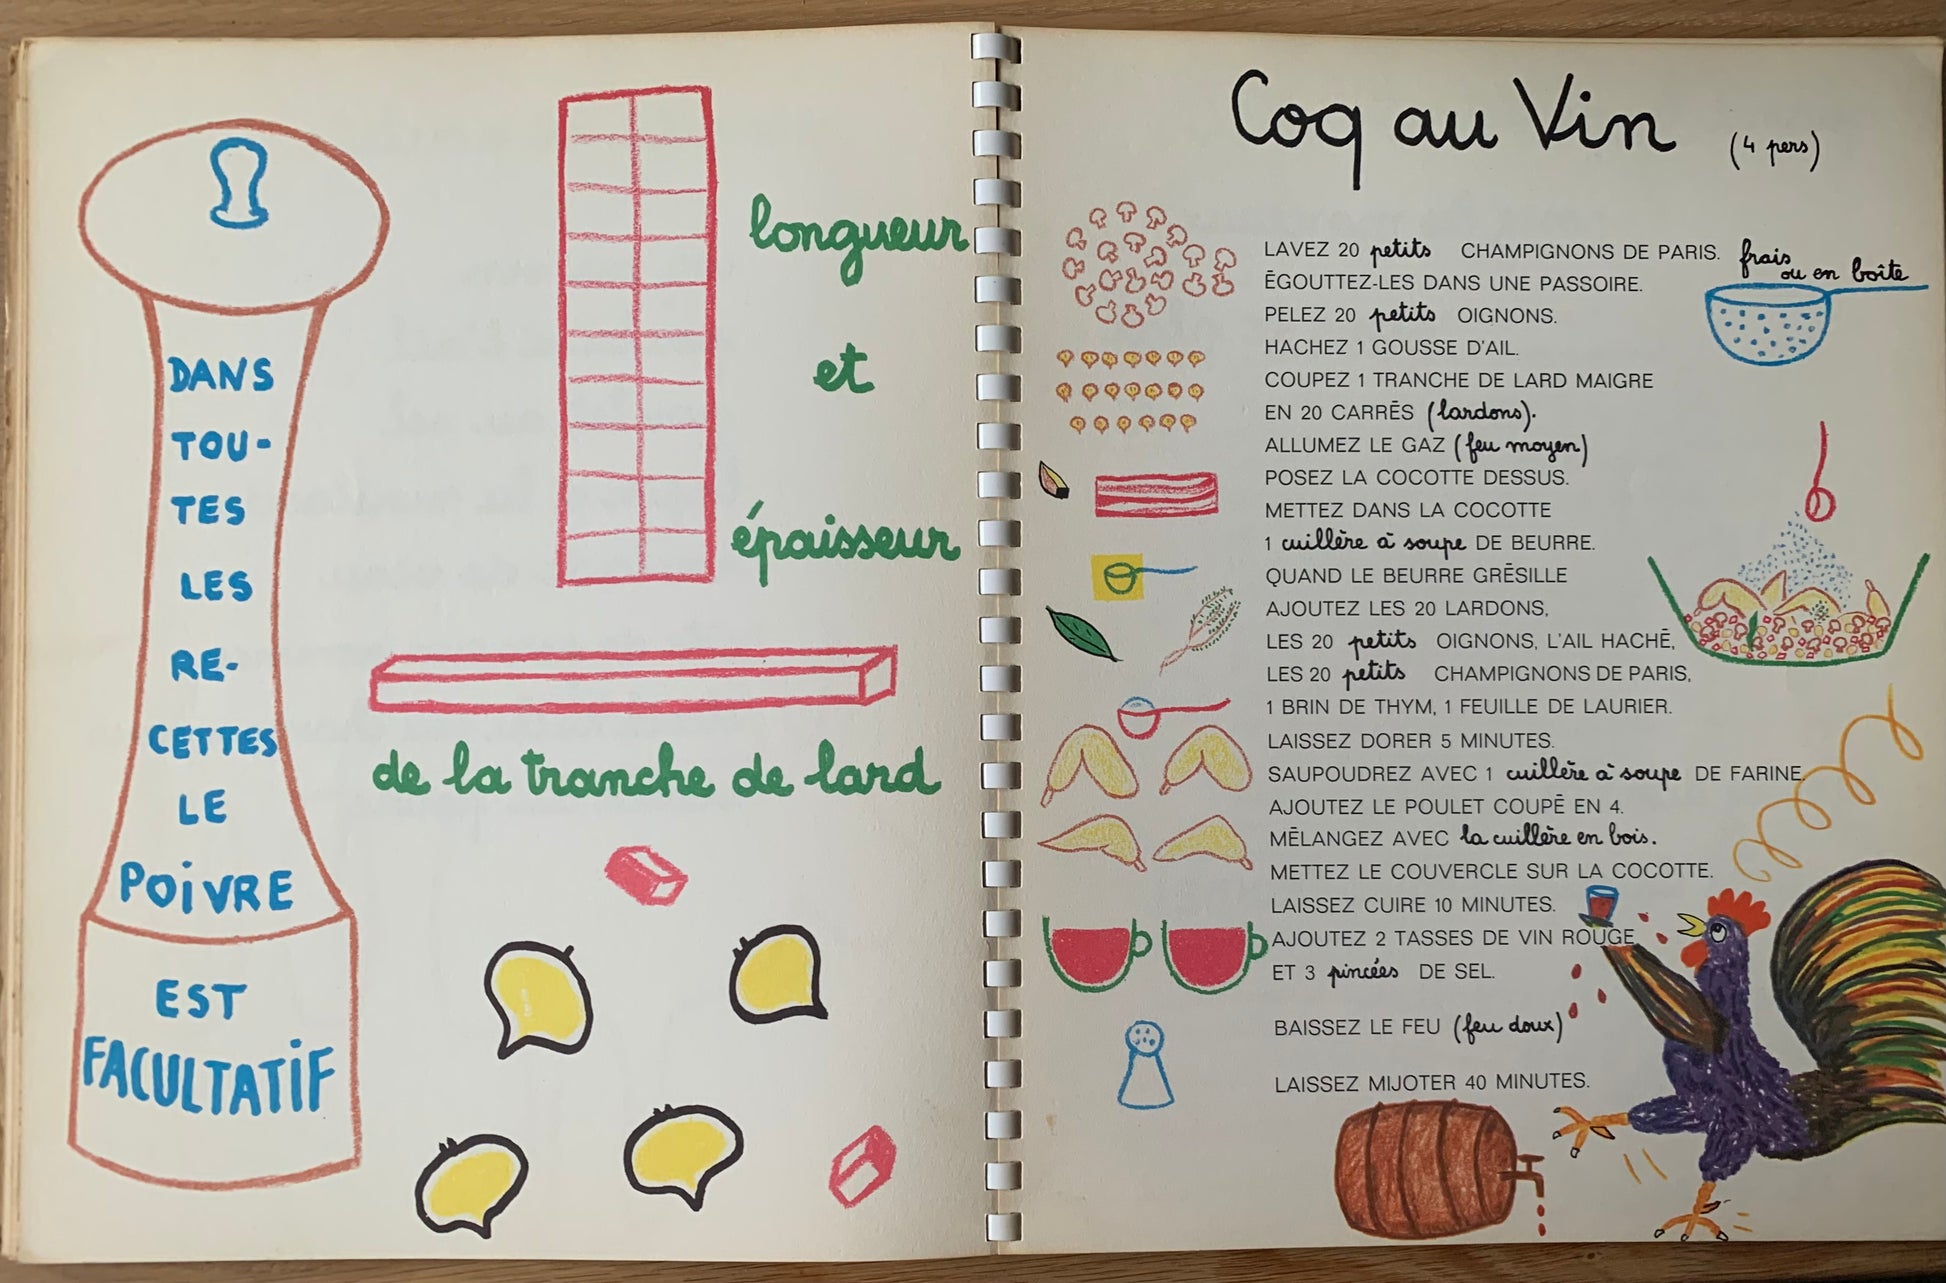 DANS
TOU-
TES
LES
RE-
CETTES
LE
POIVRE
EST
FACULTATIF
longueur
et
épaisseur
de la tranche de lard
Coq au Vin (4 pers)
LAVEZ 20 petits CHAMPIGNONS DE PARIS. frais
ou en boîte
ÉGOUTTEZ-LES DANS UNE PASSOIRE.
PELEZ 20 petits OIGNONS.
HACHEZ 1 GOUSSE D'AIL.
COUPEZ 1 TRANCHE DE LARD MAIGRE
EN 20 CARRÉS (lardons).
ALLUMEZ LE GAZ (feu moyen)
POSEZ LA COCOTTE DESSUS.
METTEZ DANS LA COCOTTE
1 cuillère à soupe DE BEURRE.
QUAND LE BEURRE GRÉSILLE
AJOUTEZ LES 20 LARDONS,
LES 20 petits OIGNONS, L'AIL HACHÉ,
LES 20 petits CHAMPIGNONS DE PARIS,
1 BRIN DE THYM, 1 FEUILLE DE LAURIER.
LAISSEZ DORER 5 MINUTES.
SAUPOUDREZ AVEC 1 cuillère à soupe DE FARINE.
AJOUTEZ LE POULET COUPÉ EN 4.
MÉLANGEZ AVEC la cuillère en bois.
METTEZ LE COUVERCLE SUR LA COCOTTE.
LAISSEZ CUIRE 10 MINUTES.
AJOUTEZ 2 TASSES DE VIN ROUGE
ET 3 pincées DE SEL.
BAISSEZ LE FEU (feu doux)
LAISSEZ MIJOTER 40 MINUTES.